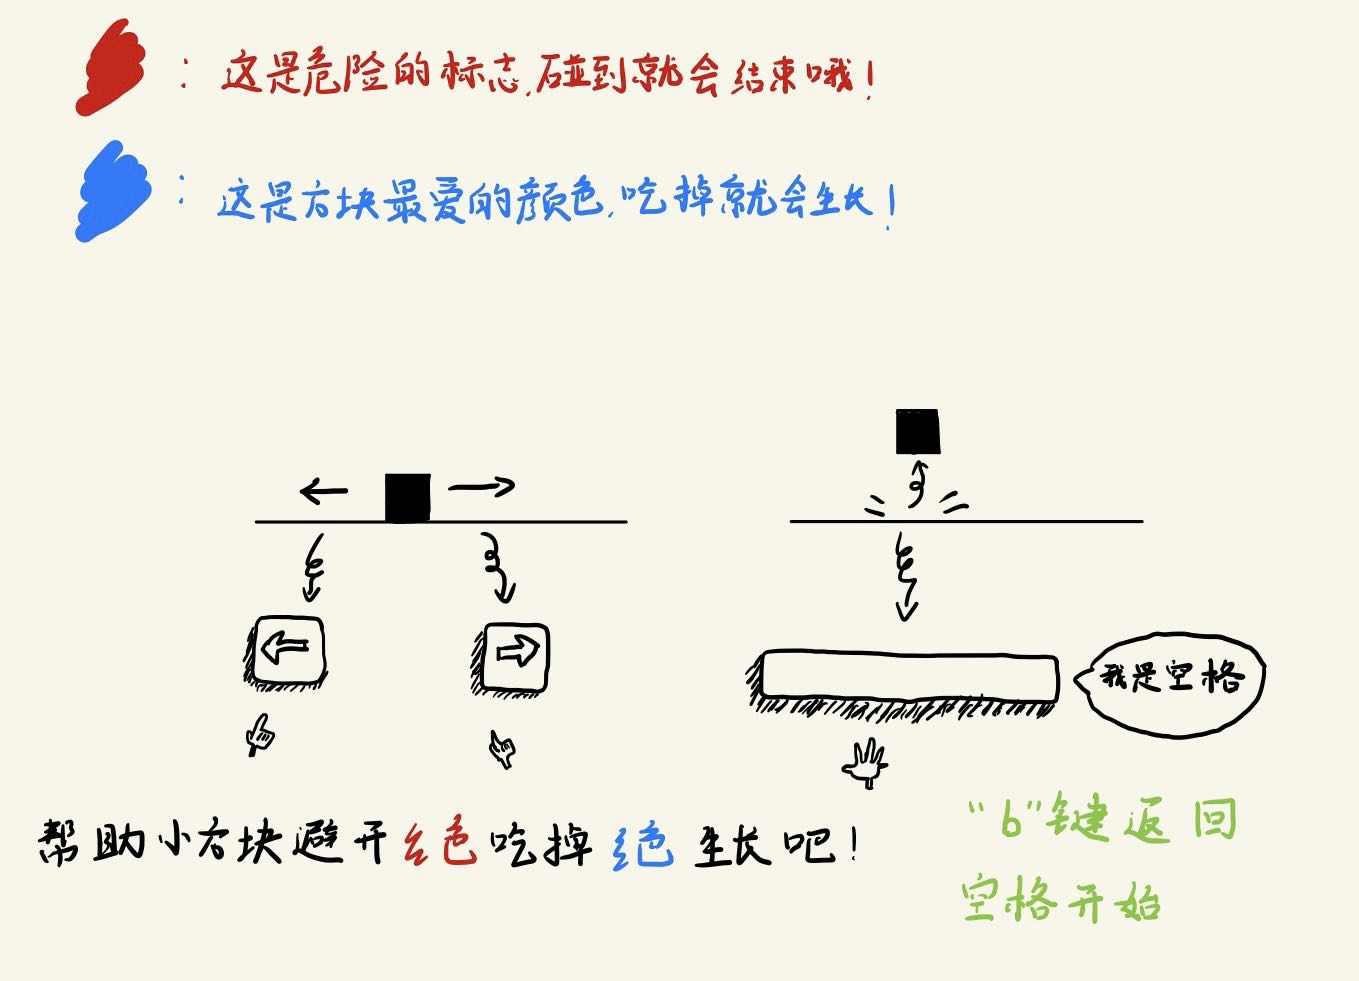 ：这是危险的标志，碰到就会结束哦！
：这是方块最爱的颜色，吃掉就会生长！
我是空格
帮助小方块避开红色吃掉绝色生长吧！
“b”键返回
空格开始